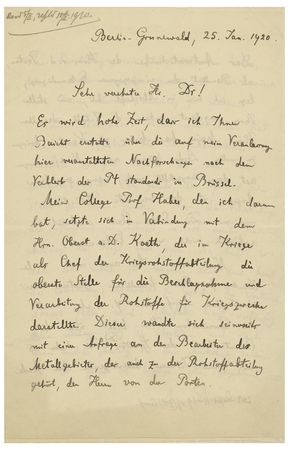 Berlin-Grunewald, 25. Jan. 1920.
Sehr verehrter Hr. Dr!
Es wird hohe Zeit, dass ich Ihnen
Bericht erstatte über die auf mein Veranlassung
hier veranstalteten Nachforschungen nach dem
Verbleib der Pt standards in Brüssel.
Mein College Prof Haber, den ich darum
bat, setzte sich in Verbindung mit dem
Hrn. Oberst a.D. Koeth, der im Kriege
als Chef der Kriegsrohstoffabteilung die
oberste Stelle für die Beschlagnahme und
Verarbeitung der Rohstoffe für Kriegszwecke
darstellte. Dieser wandte sich seinerseits
mit einer Anfrage an den Bearbeiter des
Metallgebietes, der auch zu der Rohstoffabteilung
gehört, den Herrn von der Porten.